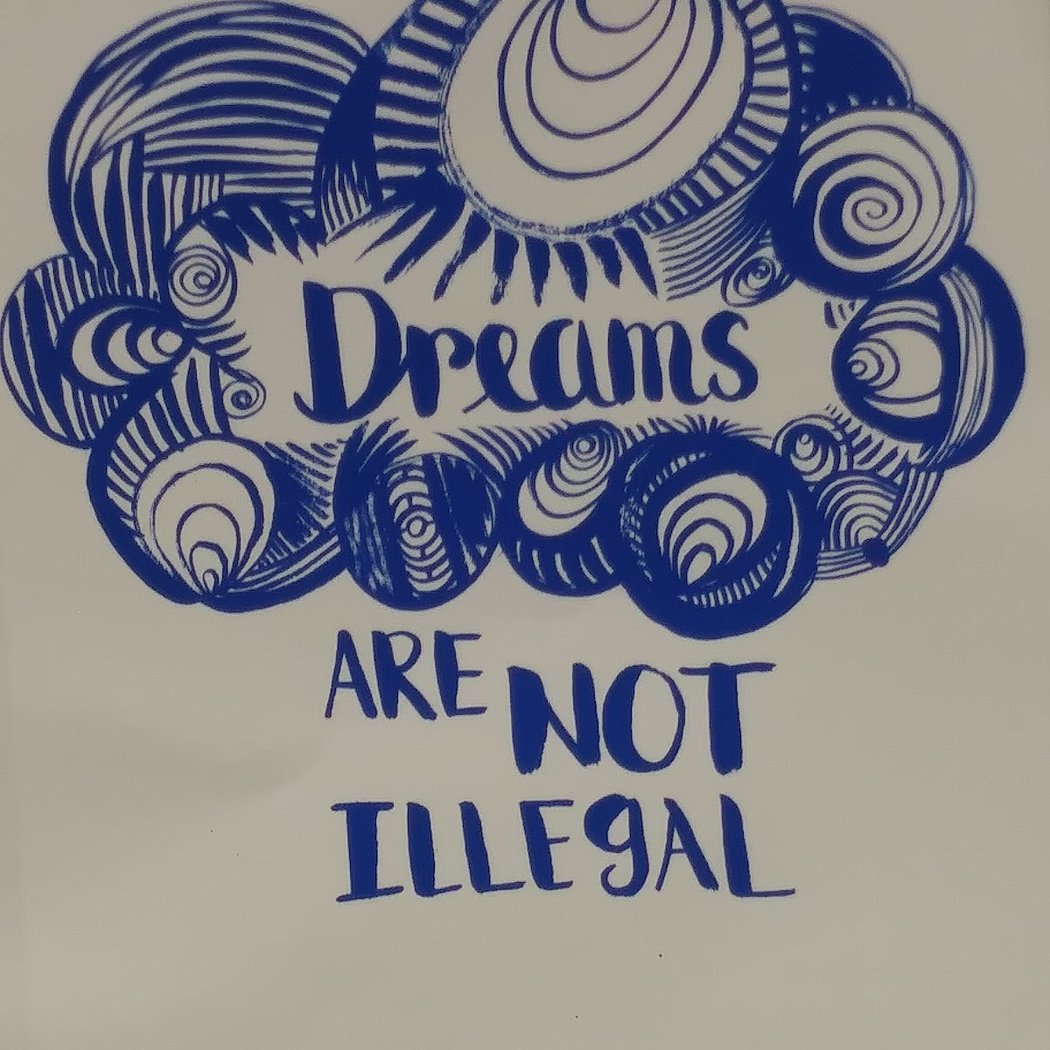 Dreams
ARE NOT
ILLEgAL